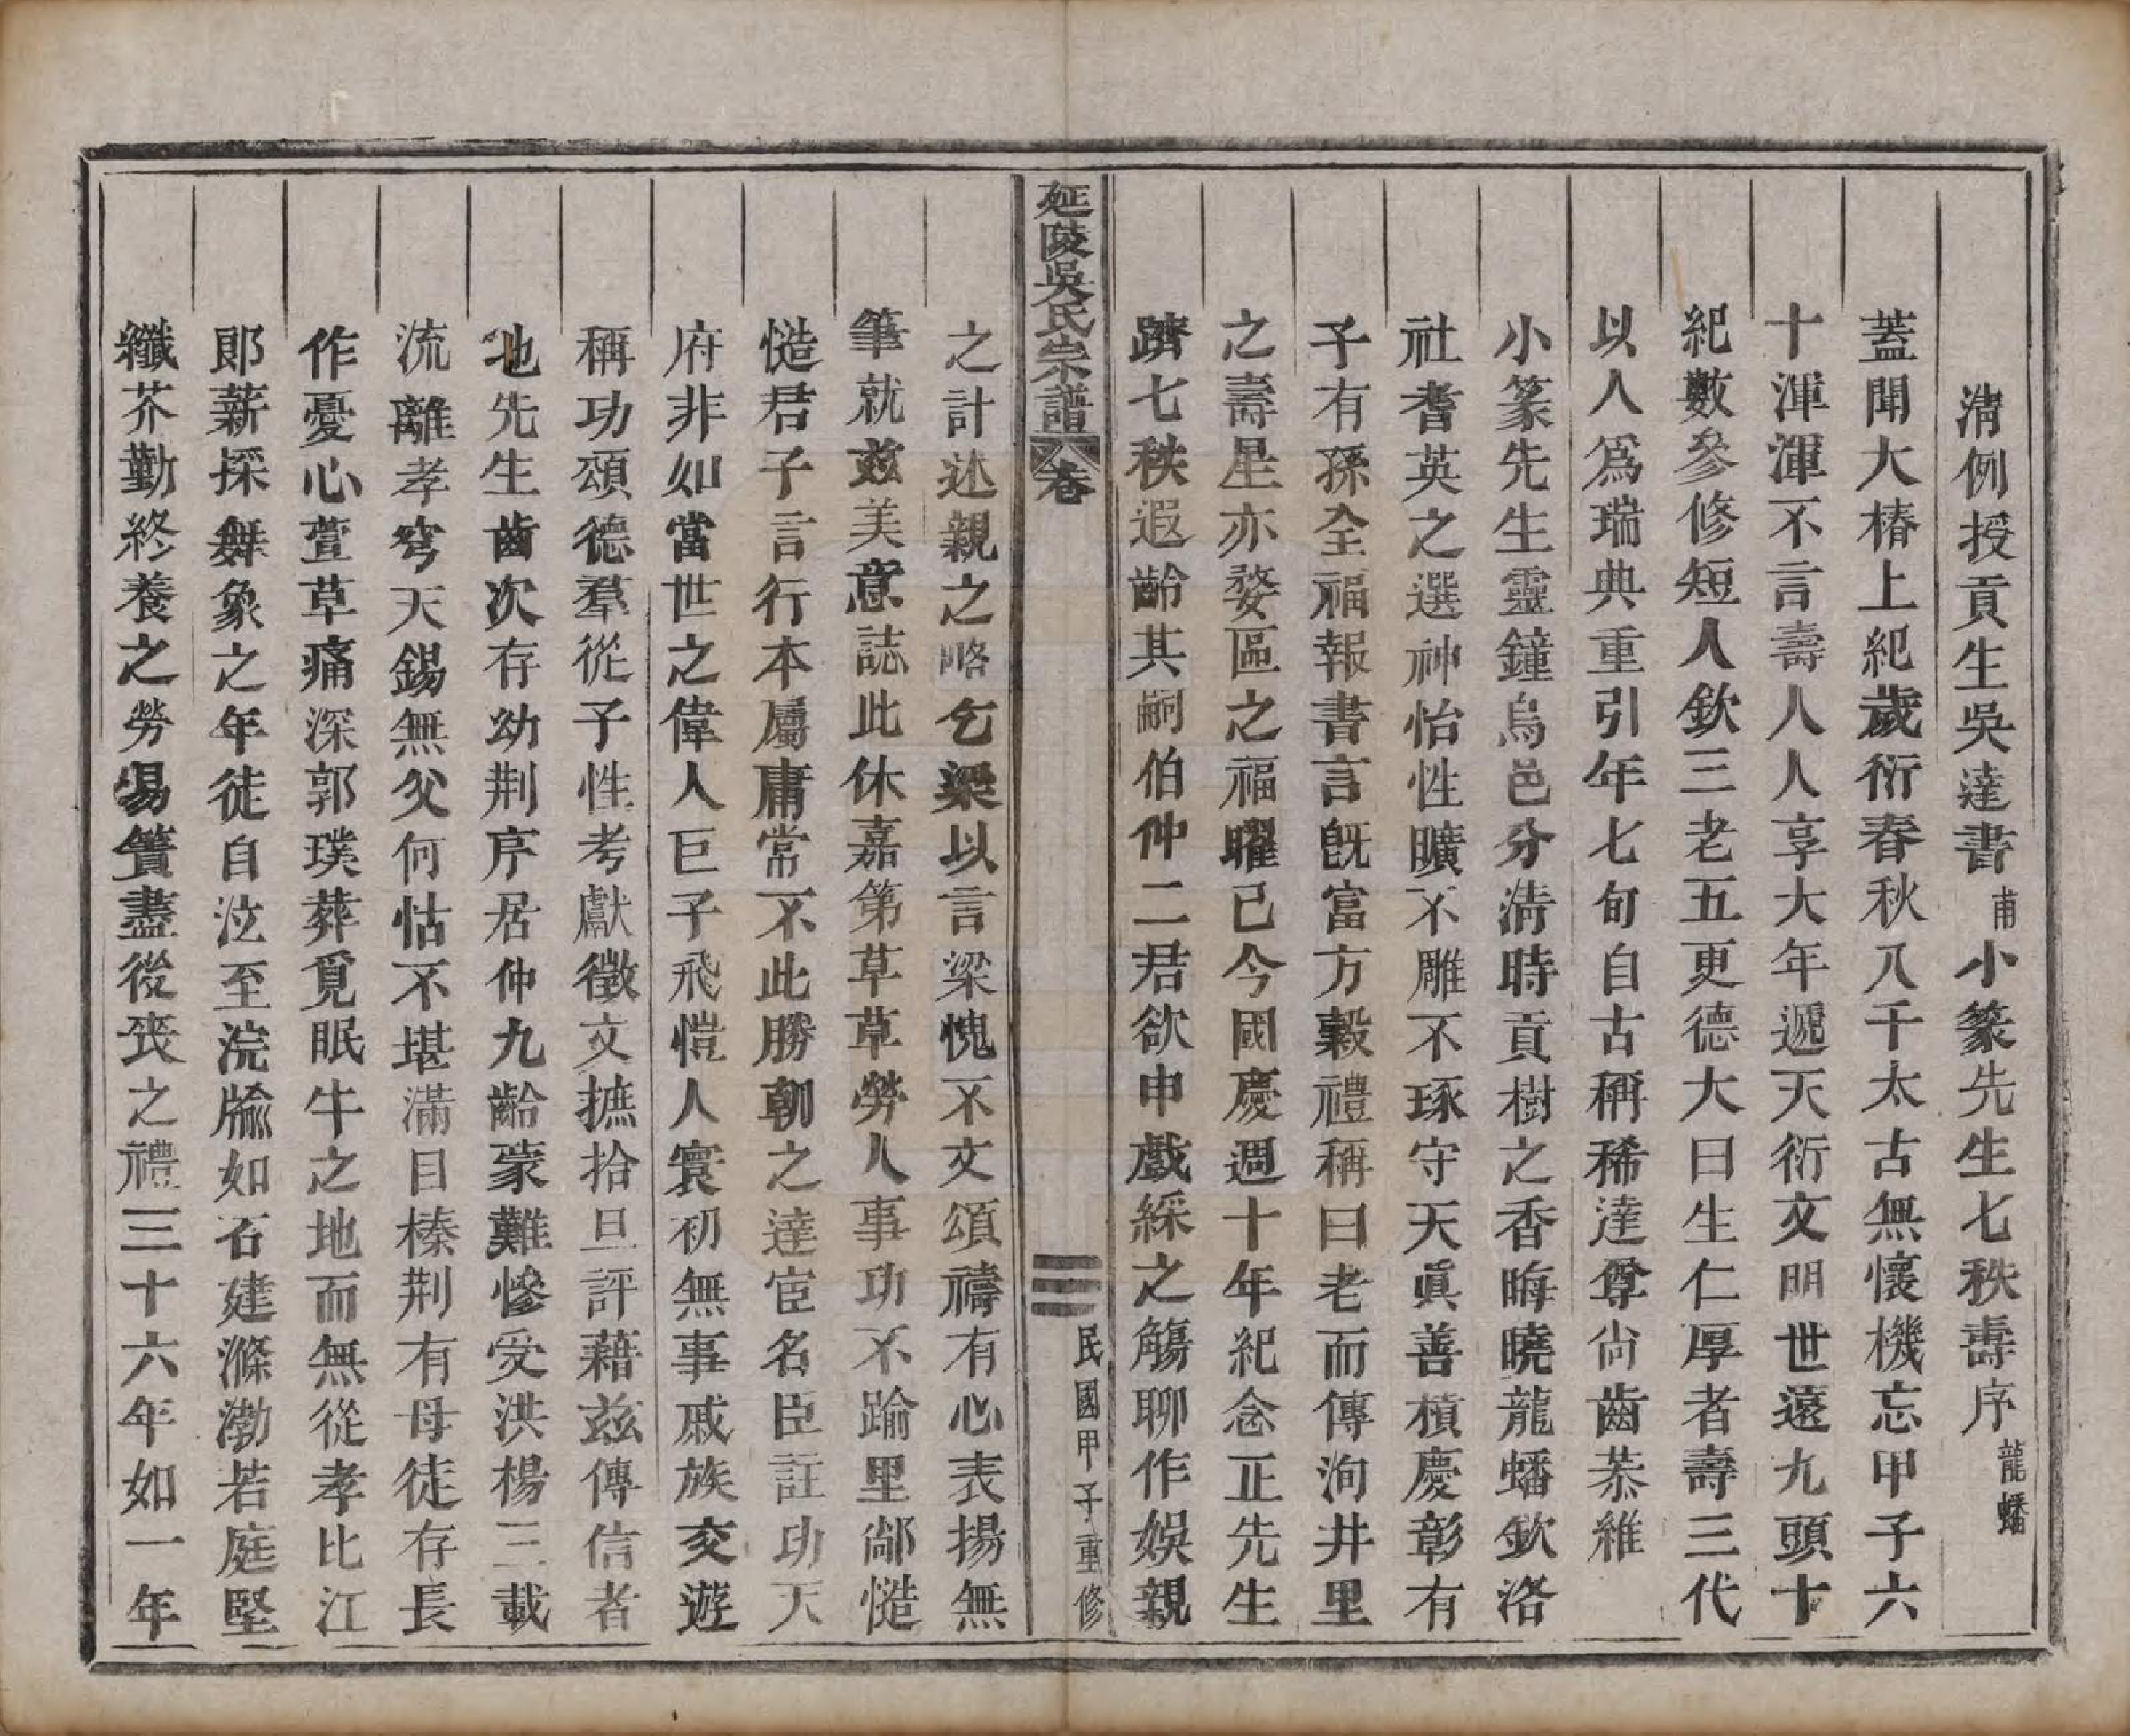 清例授貢生吳達書甫小篆先生七秩壽序龍蟠
蓋聞大椿上紀歲衍春秋八千太古無懷機忘甲子六
十渾渾不言壽人人享大年遞天衍文明世遠九頭十
紀數參修短人欽三老五更德大曰生仁厚者壽三代
以人爲瑞典重引年七旬自古稱稀達尊尚齒恭維
小篆先生靈鐘烏邑分淸時貢樹之香晦曉龍蟠欽洛
社耆英之選神怡性曠不雕不琢守天眞善積慶彰有
子有孫全福報書言旣富方穀禮稱曰老而傳洵井里
之壽星亦婺區之福曜已今國慶週十年紀念正先生
躋七秩遐齡其嗣伯仲二君欲申戲綵之觴聊作娛親
延陵吳氏宗譜 卷 三
民國甲子重修
之計述親之略乞梁以言梁愧不文頌禱有心表揚無
筆就玆美意誌此休嘉第草草勞人事功不踰里鄰慥
慥君子言行本屬庸常不此勝朝之達宦名臣註功天
府非如當世之偉人巨子飛愷人寰初無事戚族交遊
稱功頌德羣從子性考獻徵文摭拾旦評藉玆傳信者
也先生齒次存幼荆序居仲九齡蒙難慘受洪楊三載
流離孝穹天錫無父何怙不堪滿目榛荆有母徒存長
作憂心萱草痛深郭璞葬覓眠牛之地而無從孝比江
郞薪採舞象之年徒自泣至浣牏如石建滌溺若庭堅
纖芥勤終養之勞易簀盡後喪之禮三十六年如一年